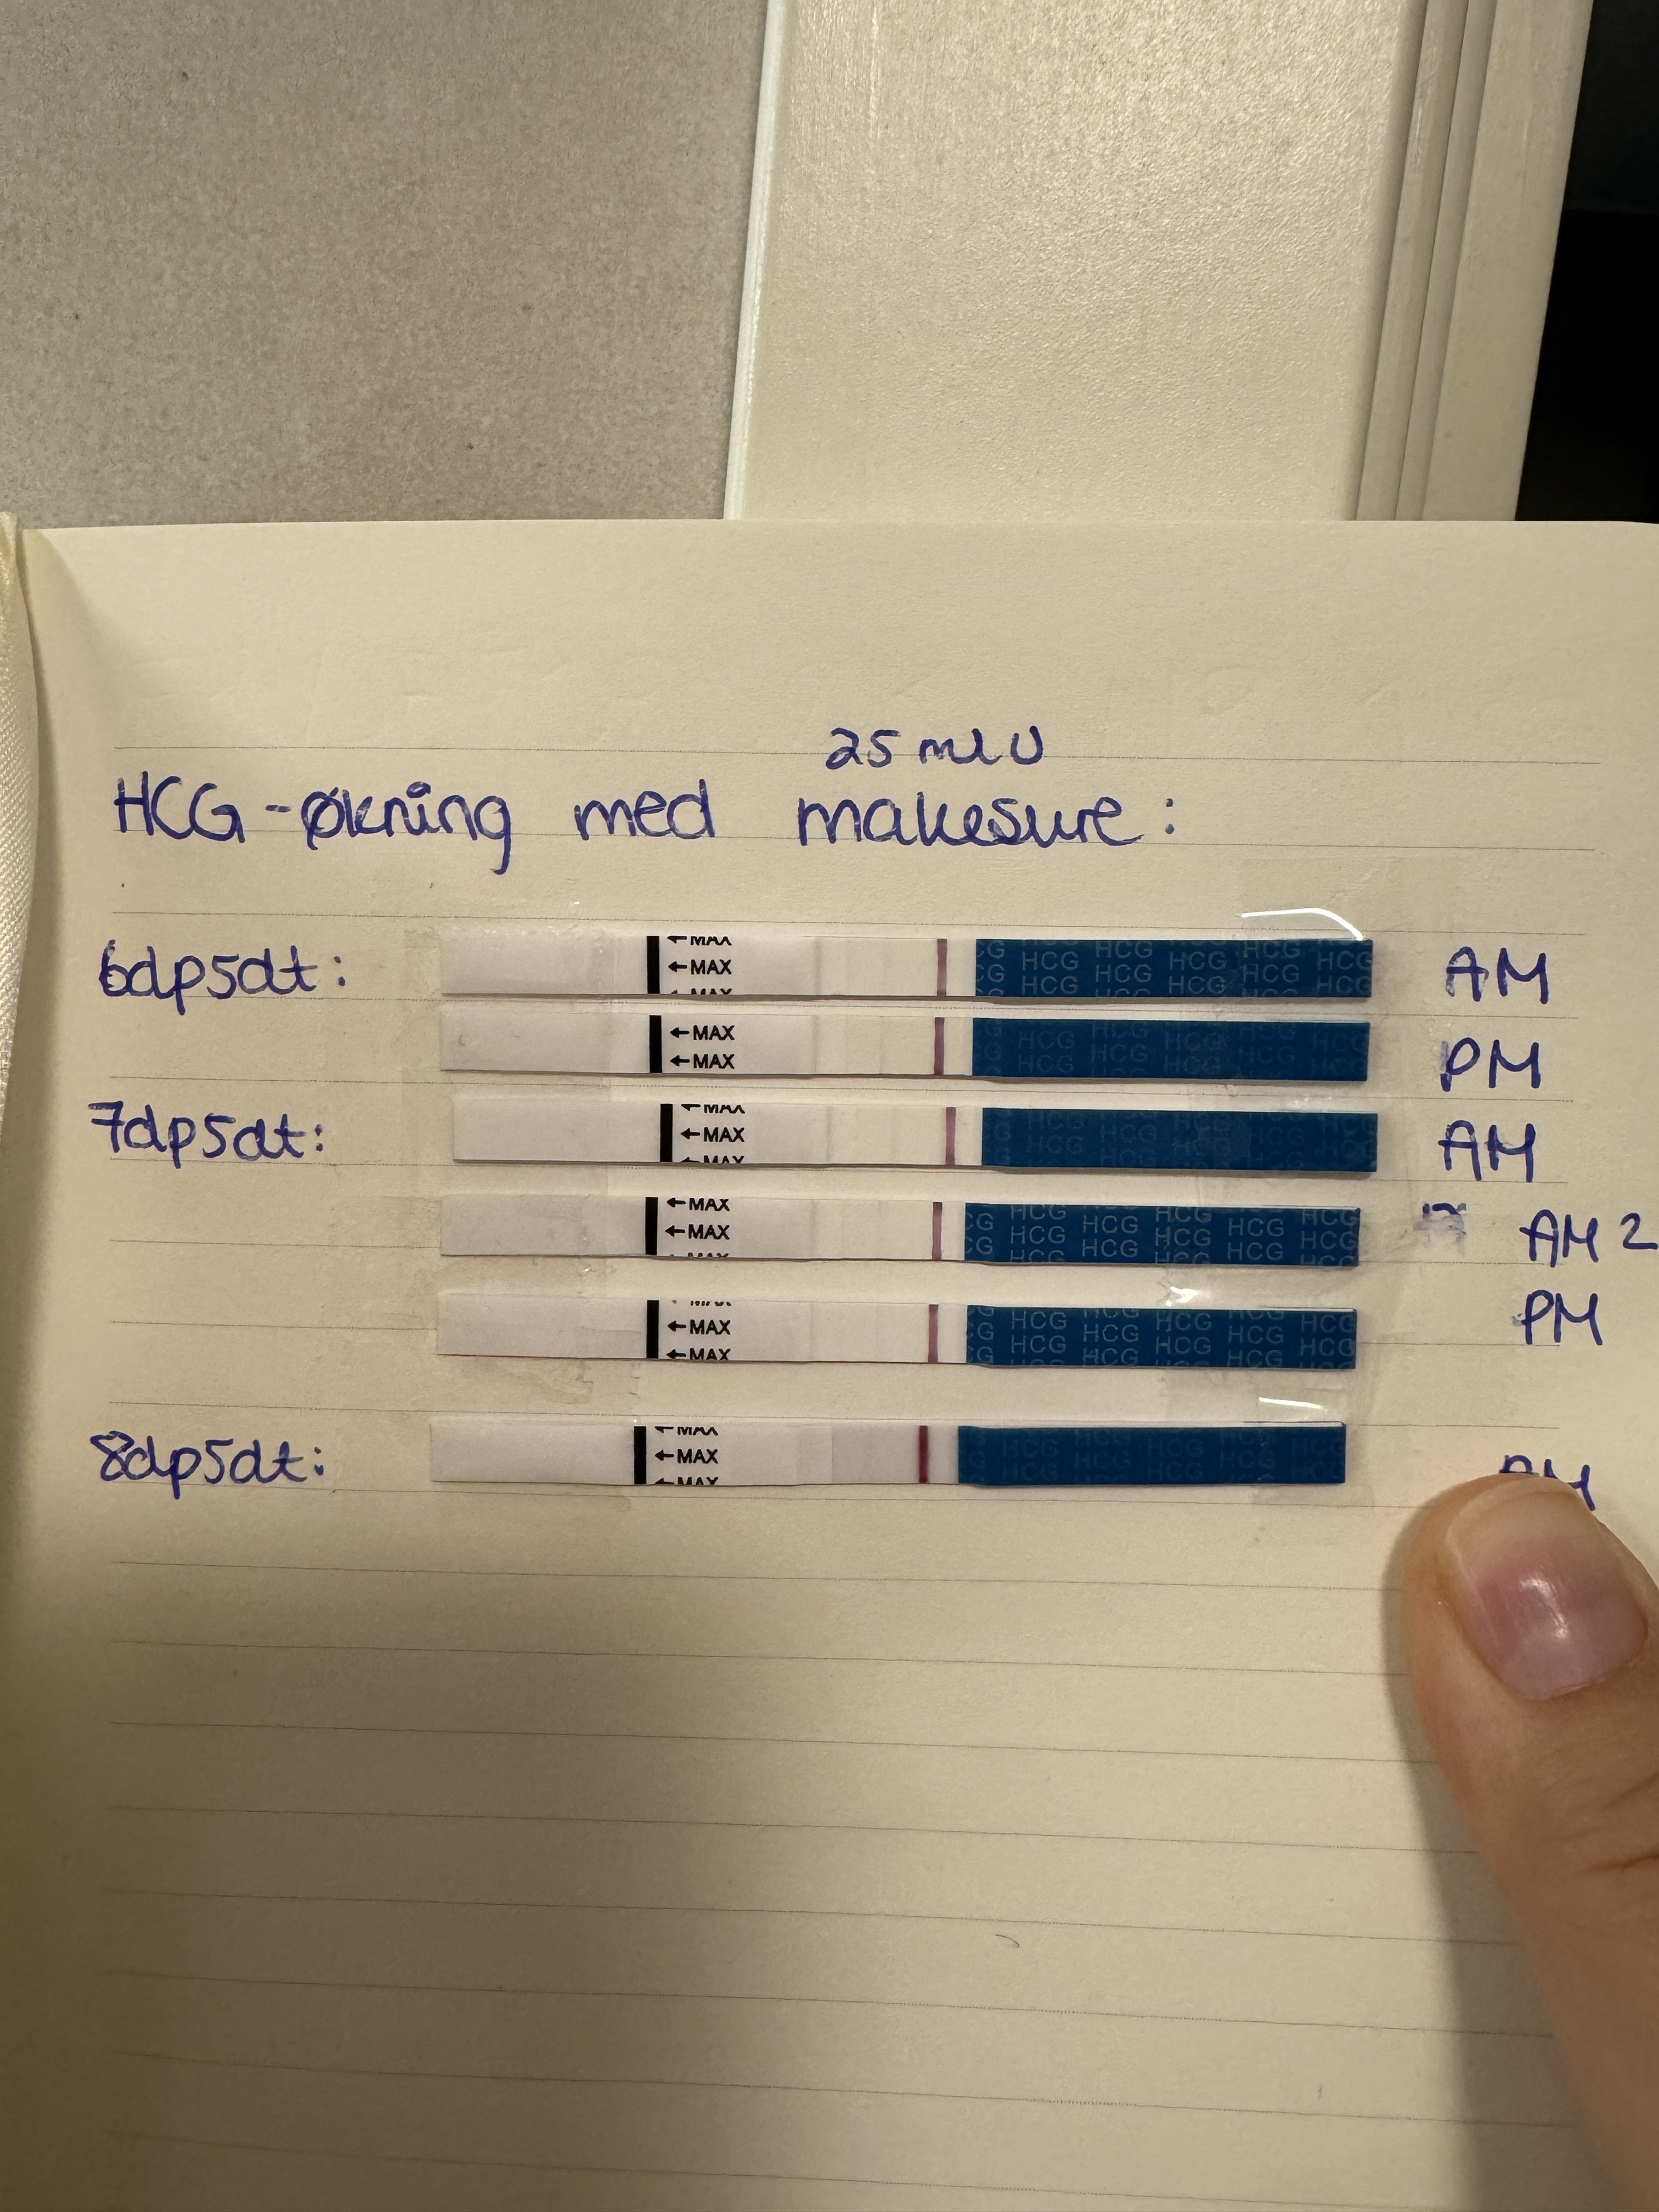 25 mIU
HCG-økning med makesure:
6dp5dt: ←MAX ←MAX ←MAX CG HCG HCG HCG HCG HCG HCG CG HCG HCG HCG AM
←MAX ←MAX HCG HCG HCG HCG HCG HCG PM
7dp5dt: ←MAX ←MAX ←MAX HCG HCG HCG AM
←MAX ←MAX ←MAX CG HCG HCG HCG HCG HCG CG HCG HCG HCG HCG HCG AM 2
MAX ←MAX ←MAX CG HCG HCG HCG HCG HCG CG HCG HCG HCG HCG HCG PM
8dp5dt: ←MAX ←MAX ←MAX HCG HCG HCG HCG